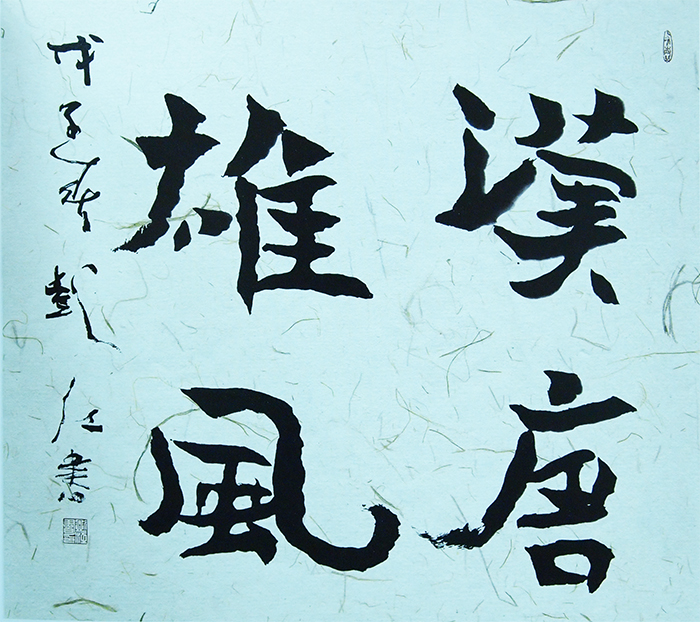 漢唐
雄風
戊子春彭仁書